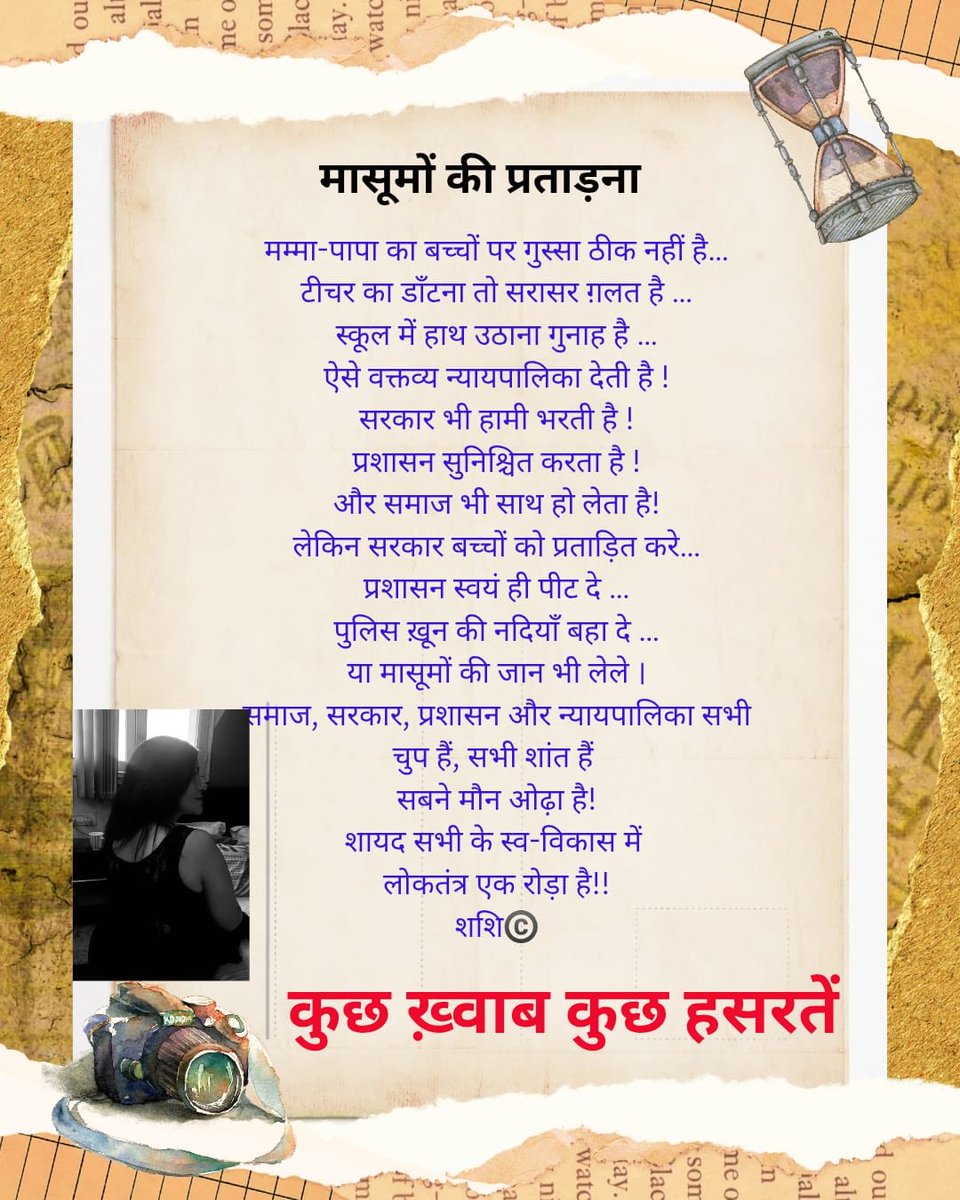 मासूमों की प्रताड़ना
मम्मा-पापा का बच्चों पर गुस्सा ठीक नहीं है...
टीचर का डाँटना तो सरासर ग़लत है ...
स्कूल में हाथ उठाना गुनाह है ...
ऐसे वक्तव्य न्यायपालिका देती है !
सरकार भी हामी भरती है !
प्रशासन सुनिश्चित करता है !
और समाज भी साथ हो लेता है!
लेकिन सरकार बच्चों को प्रताड़ित करे...
प्रशासन स्वयं ही पीट दे ...
पुलिस ख़ून की नदियाँ बहा दे ...
या मासूमों की जान भी लेले ।
समाज, सरकार, प्रशासन और न्यायपालिका सभी
चुप हैं, सभी शांत हैं
सबने मौन ओढ़ा है!
शायद सभी के स्व-विकास में
लोकतंत्र एक रोड़ा है!!
शशि©
कुछ ख़्वाब कुछ हसरतें